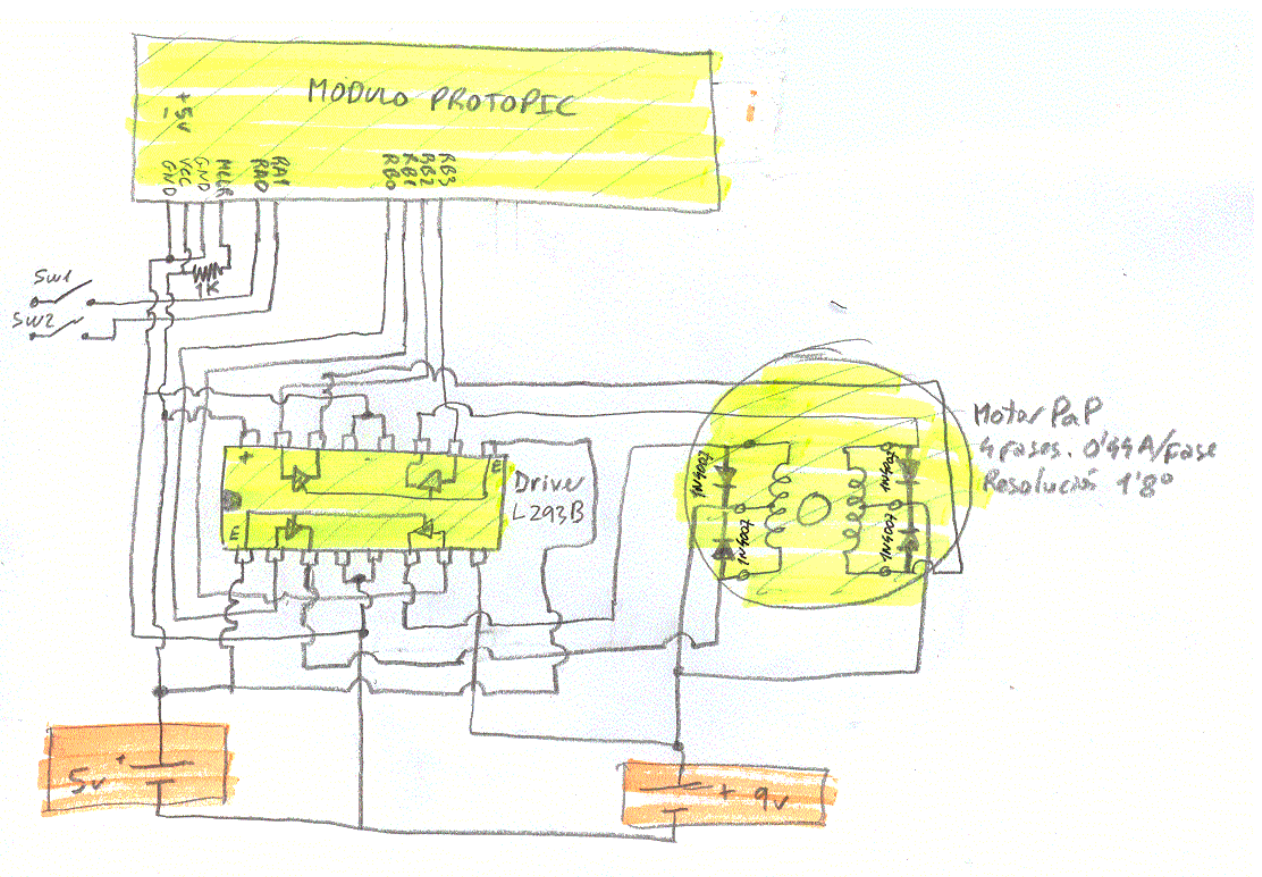 MODULO PROTOPIC
+5V
-
GND
VCC
GND
MCLR
RA0
RA1
RB0
RB1
RB2
RB3
SW1
SW2
1K
+
E
E
Driver
L293B
1N4007
1N4007
1N4007
1N4007
Motor PaP
4 fases. 0'44A/fase
Resolución 1'8º
5v +
+ 9v